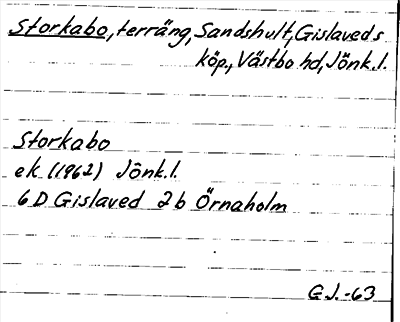 Storkabo, terräng, Sandshult, Gislaveds
köp., Västbo hd, Jönk.l.
Storkabo
ek. (1962) Jönk.l.
6 D Gislaved 2b Örnaholm
G.J.-63